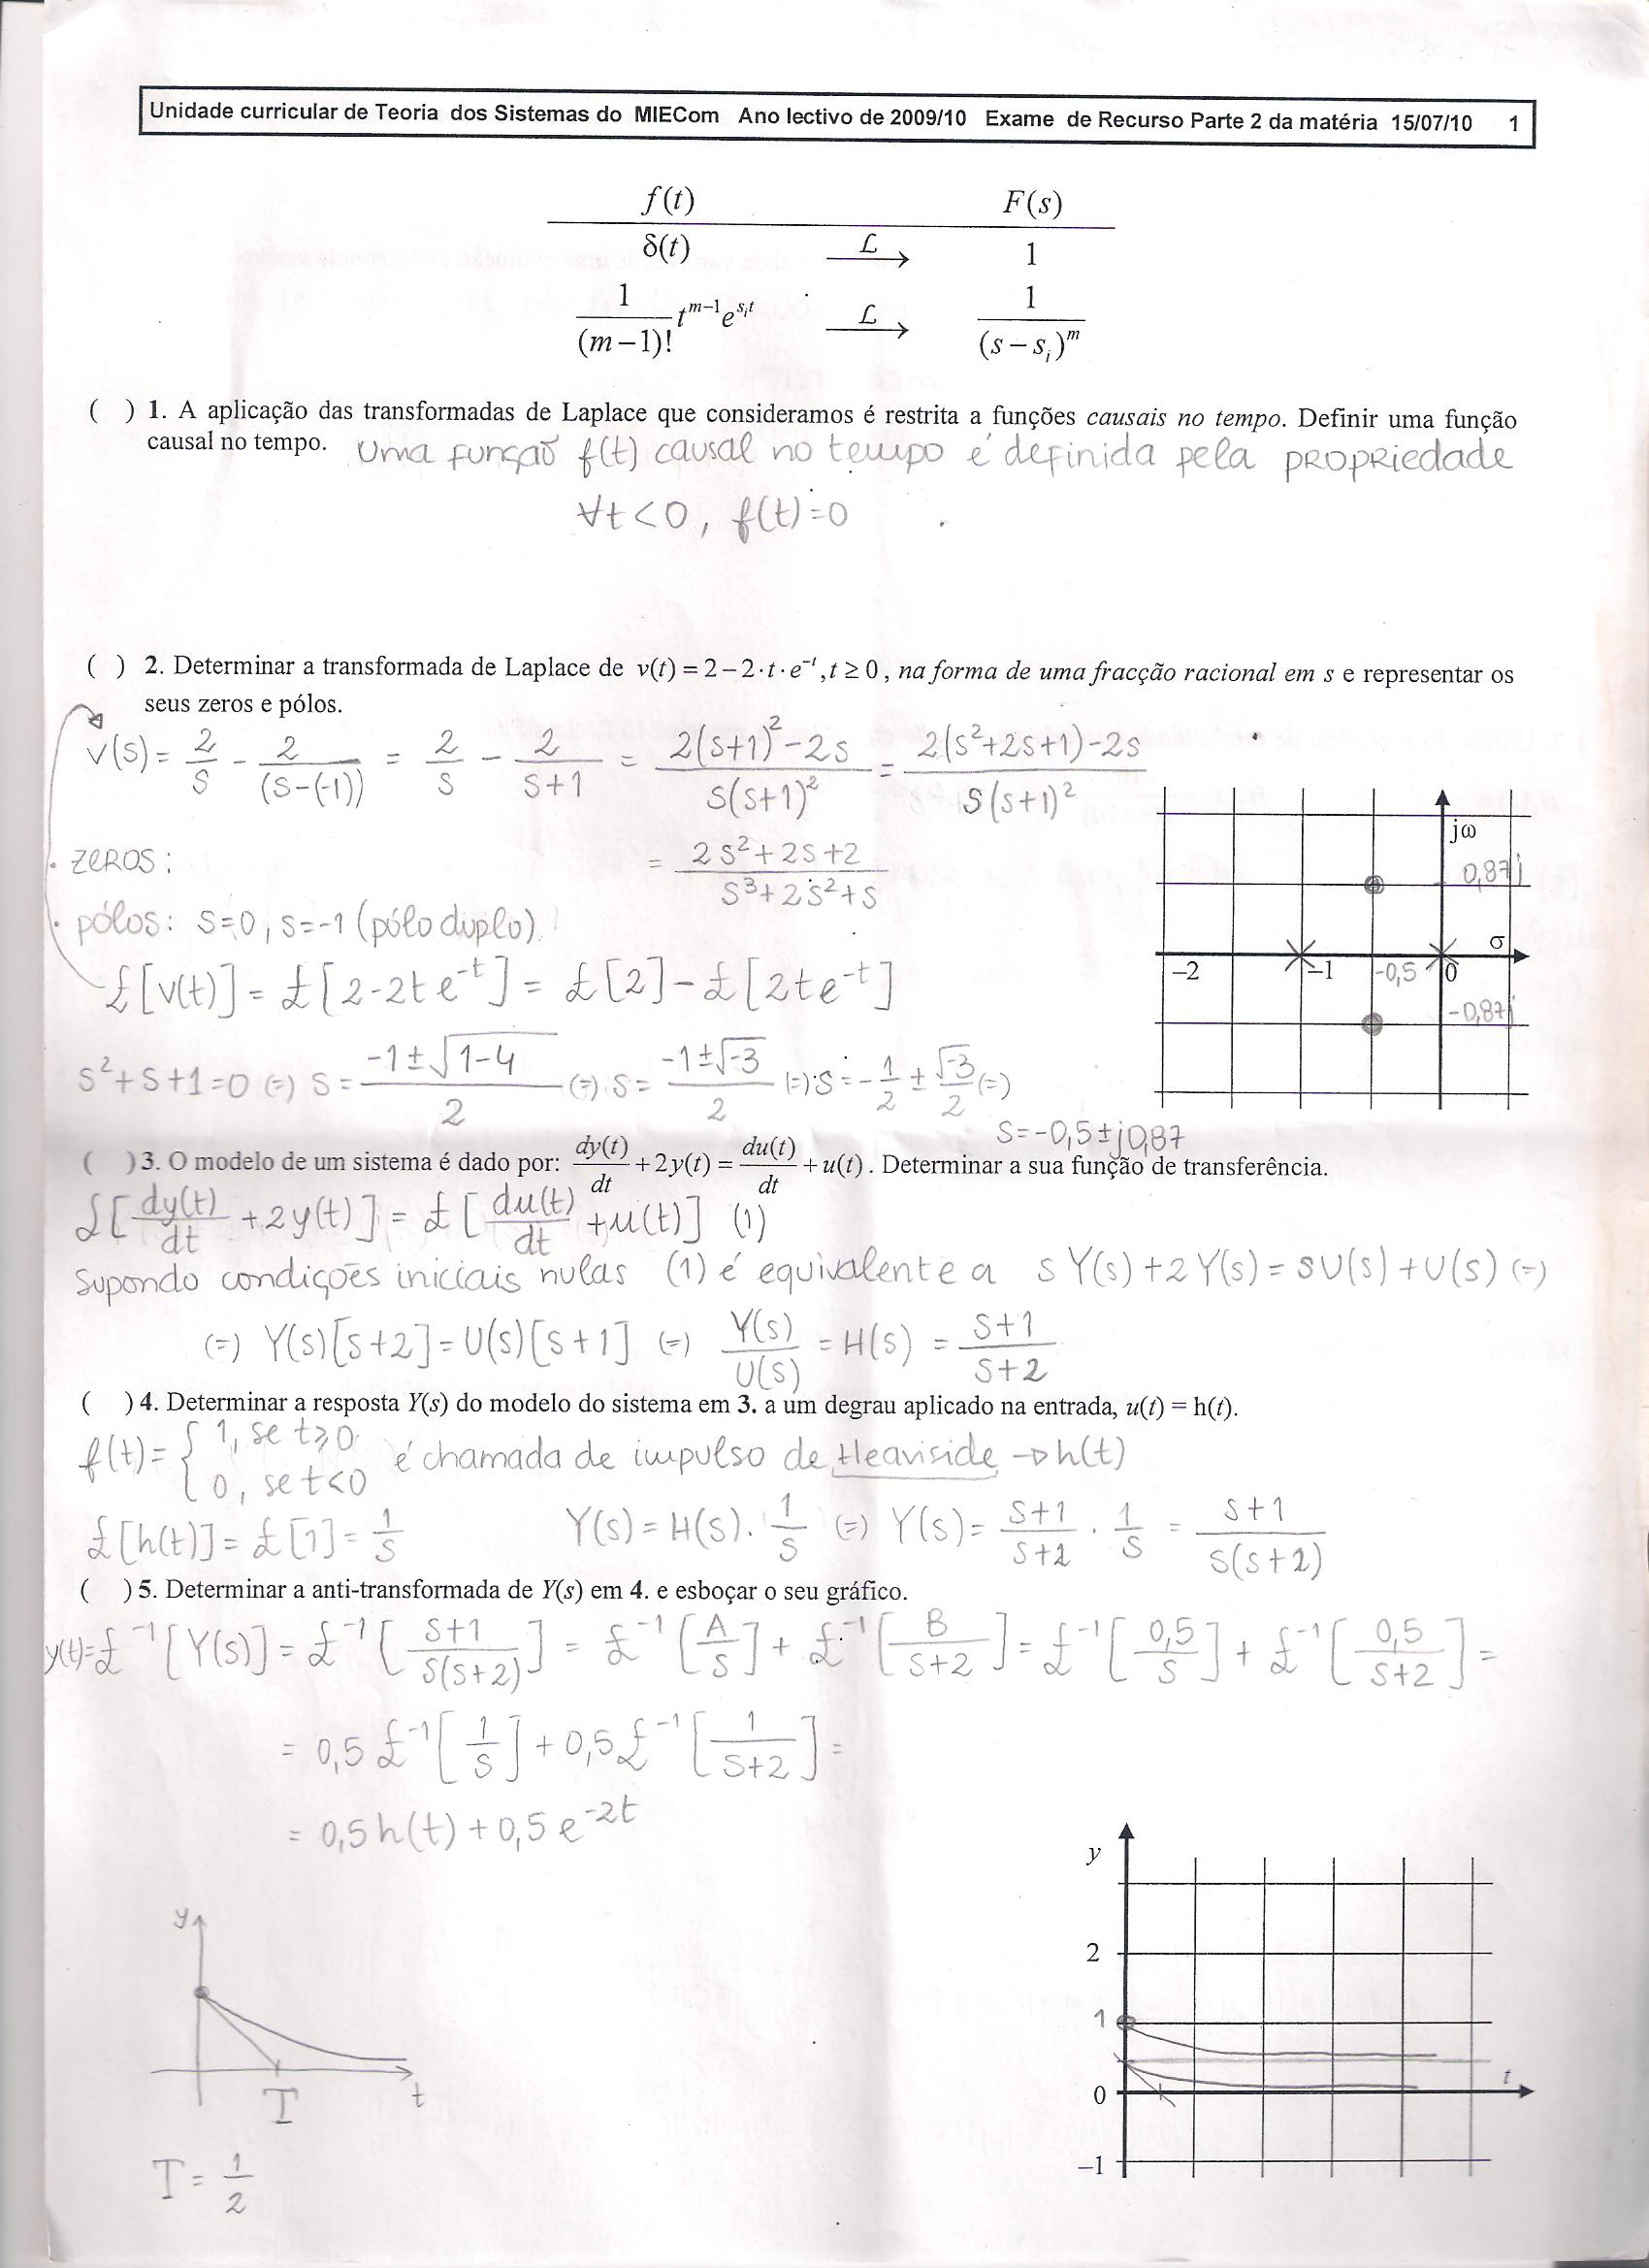 Unidade curricular de Teoria dos Sistemas do MIECom Ano lectivo de 2009/10 Exame de Recurso Parte 2 da matéria 15/07/10 1
f(t) F(s)
δ(t) ℒ→ 1
1/(m−1)! t^(m−1) e^(s_i t) ℒ→ 1/(s−s_i)^m
( ) 1. A aplicação das transformadas de Laplace que consideramos é restrita a funções causais no tempo. Definir uma função
causal no tempo. Uma função f(t) causal no tempo é definida pela propriedade
∀t<0, f(t)=0
( ) 2. Determinar a transformada de Laplace de v(t) = 2−2·t·e^(−t), t ≥ 0, na forma de uma fracção racional em s e representar os
seus zeros e pólos.
V(s) = 2/s - 2/(s-(-1)) = 2/s - 2/(s+1) = (2(s+1)²-2s)/(s(s+1)²) = (2(s²+2s+1)-2s)/(s(s+1)²)
· zeros: = (2s²+2s+2)/(s³+2s²+s)
· pólos: s=0, s=-1 (pólo duplo)
£[v(t)] = £[2-2te^(-t)] = £[2]-£[2te^(-t)]
s²+s+1=0 (=) s = (-1±√(1-4))/2 (=) s = (-1±√-3)/2 (=) s = -1/2 ± √-3/2 (=)
s=-0,5±j0,87
jω
0,87j
σ
−2 −1 -0,5 0
-0,87j
( ) 3. O modelo de um sistema é dado por: dy(t)/dt + 2y(t) = du(t)/dt + u(t). Determinar a sua função de transferência.
£[dy(t)/dt + 2y(t)] = £[du(t)/dt + u(t)] (1)
Supondo condições iniciais nulas (1) é equivalente a sY(s)+2Y(s)=sU(s)+U(s) (=)
(=) Y(s)[s+2]=U(s)[s+1] (=) Y(s)/U(s) = H(s) = (s+1)/(s+2)
( ) 4. Determinar a resposta Y(s) do modelo do sistema em 3. a um degrau aplicado na entrada, u(t) = h(t).
f(t)= { 1, se t≥0 é chamada de impulso de Heaviside → h(t)
0, se t<0
£[h(t)] = £[1] = 1/s Y(s) = H(s). 1/s (=) Y(s) = (s+1)/(s+2) . 1/s = (s+1)/(s(s+2))
( ) 5. Determinar a anti-transformada de Y(s) em 4. e esboçar o seu gráfico.
y(t)=£^-1[Y(s)] = £^-1[(s+1)/(s(s+2))] = £^-1[A/s] + £^-1[B/(s+2)] = £^-1[0,5/s] + £^-1[0,5/(s+2)] =
= 0,5£^-1[1/s] + 0,5£^-1[1/(s+2)] =
= 0,5h(t)+0,5e^(-2t)
y
T t
T = 1/2
y
2
1
t
0
−1